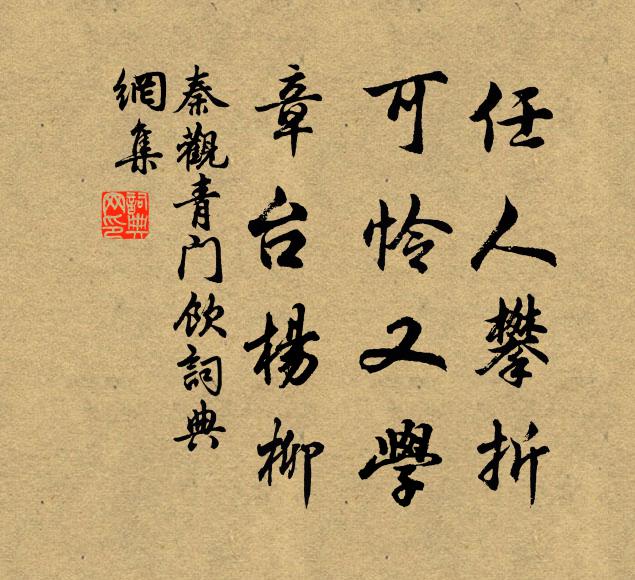 任人攀折
可怜又學
章台楊柳
秦觀青门飲詞典
網集
詞典網印